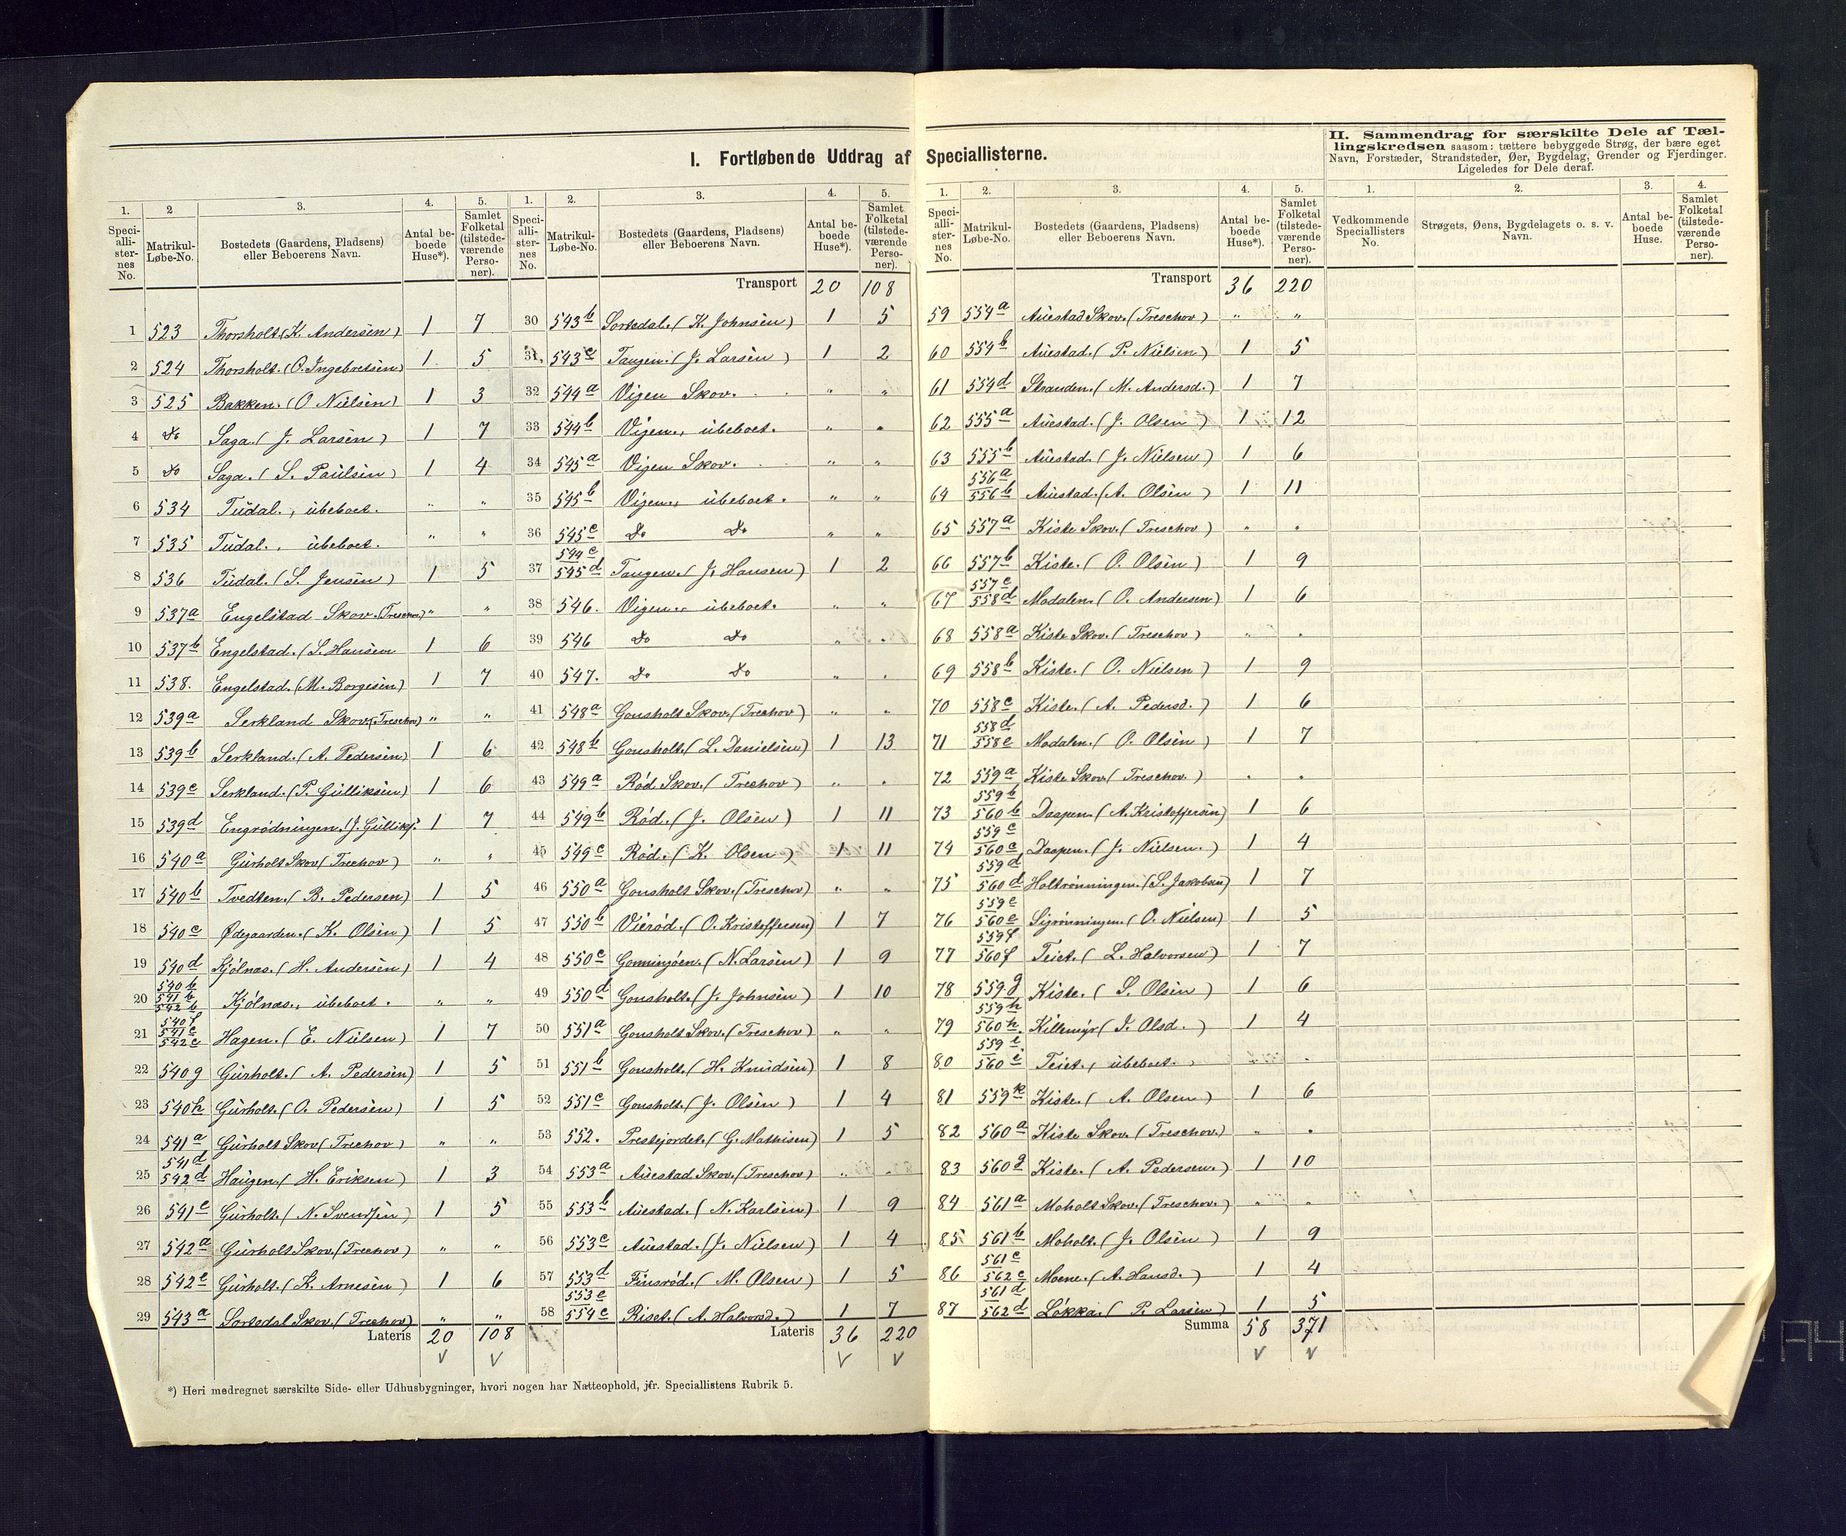 I. Fortløbende Uddrag af Speciallisterne.
II. Sammendrag for særskilte Dele af Tæl-
lingskredsen saasom: tættere bebyggede Strøg, der bære eget
Navn, Forstæder, Strandsteder, Øer, Bygdelag, Grender og Fjerdinger.
Ligeledes for Dele deraf.
1. 2 3. 4. 5.
Speciallisternes No. Matrikul-Løbe-No. Bostedets (Gaardens, Pladsens) eller Beboerens Navn. Antal beboede Huse*). Samlet Folketal (tilstedeværende Personer).
1 523 Thorsholt (K. Andersen) 1 7
2 524 Thorsholt. (O. Ingebretsen) 1 5
3 525 Bakken. (O Nielsen) 1 3
4 Do Saga. (J. Larsen) 1 7
5 Do Saga. (S. Paulsen) 1 4
6 534 Tudal., ubeboet. " "
7 535 Tudal., ubeboet. " "
8 536 Tudal. (S. Jensen) 1 5
9 537a Engelstad Skov. (Treschov) " "
10 537b Engelstad. (S. Hansen 1 6
11 538. Engelstad. (M. Borgesen) 1 7
12 539a Serkland Skov. (Treschov) " "
13 539b Serkland. (A. Pedersen) 1 6
14 539c Serkland. (P. Gulliksen) 1 6
15 539d Engrødningen. (J. Golliks. 1 7
16 540a Gurholt Skov (Trechov) " "
17 540b Tvedten. (B. Pedersen) 1 5
18 540c Ødegaarden. (K. Olsen) 1 5
19 540d Kjølnas. (H. Andersen) 1 4
20 540b 541b 542b Kjølnas., ubeboet. " "
21 540f 541c 542c Hagen. (E. Nielsen) 1 7
22 540g Gurholt. (A. Pedersen) 1 5
23 540h Gurholt. (O. Pedersen) 1 5
24 541a Gurholt Skov (Trechov) " "
25 541d 542d Haugen. (H. Eriksen) 1 3
26 541e Gurholt. (N. Svendsen) 1 5
27 542a Gurholt Skov. (Trechov) " "
28 542e Gurholt. (K. Arnesen) 1 6
29 543a Sortedal Skov. (Trechov) " "
Lateris 20 108
V V
*) Heri medregnet særskilte Side- eller Udhusbygninger, hvori nogen har Natteophold, jfr. Speciallistens Rubrik 5.
1. 2. 3. 4. 5.
Speciallisternes No. Matrikul-Løbe-No. Bostedets (Gaardens, Pladsens) eller Beboerens Navn. Antal beboede Huse*). Samlet Folketal (tilstedeværende Personer).
Transport 20 108
30 543b Sortedal. (K. Johnsen) 1 5
31 543c Tangen. (J. Larsen) 1 2
32 544a Vigen Skov. " "
33 544b Vigen., ubeboet. " "
34 545a Vigen Skov. " "
35 545b Vigen., ubeboet. " "
36 545c Do Do " "
37 544c 545d Tangen. (J. Hansen) 1 2
38 546. Vigen., ubeboet. " "
39 546 Do Do " "
40 547. Do Do " "
41 548a Gonsholt Skov. (Trechov) " "
42 548b Gonsholt. (L. Danielsen) 1 13
43 549a Rød Skov. (Trechov) " "
44 549b Rød. (J. Olsen) 1 11
45 549c Rød. (K. Olsen) 1 11
46 550a Gonsholt Skov. (Treschov) " "
47 550b Vierød. (O. Kristoffersen) 1 7
48 550c (N. Larsen) 1 9
49 550d Gonsholt. (J. Johnsen) 1 10
50 551a Gonsholt Skov. (Treschov) " "
51 551b Gonsholt. (H. Knudsen) 1 8
52 551c Gonsholt. (J. Olsen) 1 4
53 552. Prestejordet. (G. Mathisen) 1 5
54 553a Auestad Skov. (Treschov) " "
55 553b Auestad. (N. Karlsen) 1 9
56 553c Auestad. (J. Nielsen) 1 4
57 553d Finsrød. (M. Olsen) 1 5
58 553e 554c Riset. (A. Halvorsd.) 1 7
Lateris 36 220
V V
1. 2. 3. 4. 5.
Speciallisternes No. Matrikul-Løbe-No. Bostedets (Gaardens, Pladsens) eller Beboerens Navn. Antal beboede Huse*). Samlet Folketal (tilstedeværende Personer).
Transport 36 220
59 554a Auestad Skov. (Treschov) " "
60 554b Auestad. (P. Nielsen) 1 5
61 554d Stranden. (M. Andersd.) 1 7
62 555a Auestad. (J. Olsen) 1 12
63 555b Auestad. (J. Nielsen) 1 6
64 556a 556b Auestad. (A. Olsen) 1 11
65 557a Kiste Skov. (Treschov) " "
66 557b Kiste. (O. Olsen) 1 9
67 557c 558d Modalen. (O. Andersen) 1 6
68 558a Kiste Skov. (Treschov) " "
69 558b Kiste. (O. Nielsen) 1 9
70 558c Kiste. (A. Pedersd.) 1 6
71 558d 558e Modalen. (O. Olsen) 1 7
72 559a Kiste Skov. (Treschov) " "
73 559b 560b Daapen. (A. Kristoffersen) 1 6
74 559c 560c Daapen. (J. Nielsen.) 1 4
75 559d 560d Holtrønningen. (S. Jakobsen) 1 7
76 559e 560e Sigrønningen. (O. Nielsen) 1 5
77 559f 560f Teiet. (L. Halvorsen) 1 7
78 559g Kiste. (S. Olsen) 1 6
79 559h 560h. Killemyr (I. Olsd.) 1 4
80 559i 560i Teiet, ubeboet. " "
81 559k Kiste. (A. Olsen) 1 6
82 560a Kiste Skov. (Treschov.) " "
83 560g Kiste. (A. Pedersen.) 1 10
84 561a Moholt Skov. (Treschov.) " "
85 561b Moholt. (J. Olsen) 1 9
86 561c 562c Moene. (A. Hansd.) 1 4
87 561d 562d Løkka. (P. Larsen) 1 5
Summa 58 371
V V
1. 2. 3. 4.
Vedkommende Speciallisters No. Strøgets, Øens, Bygdelagets o. s. v. Navn. Antal beboede Huse. Samlet Folketal (tilstedeværende Personer).